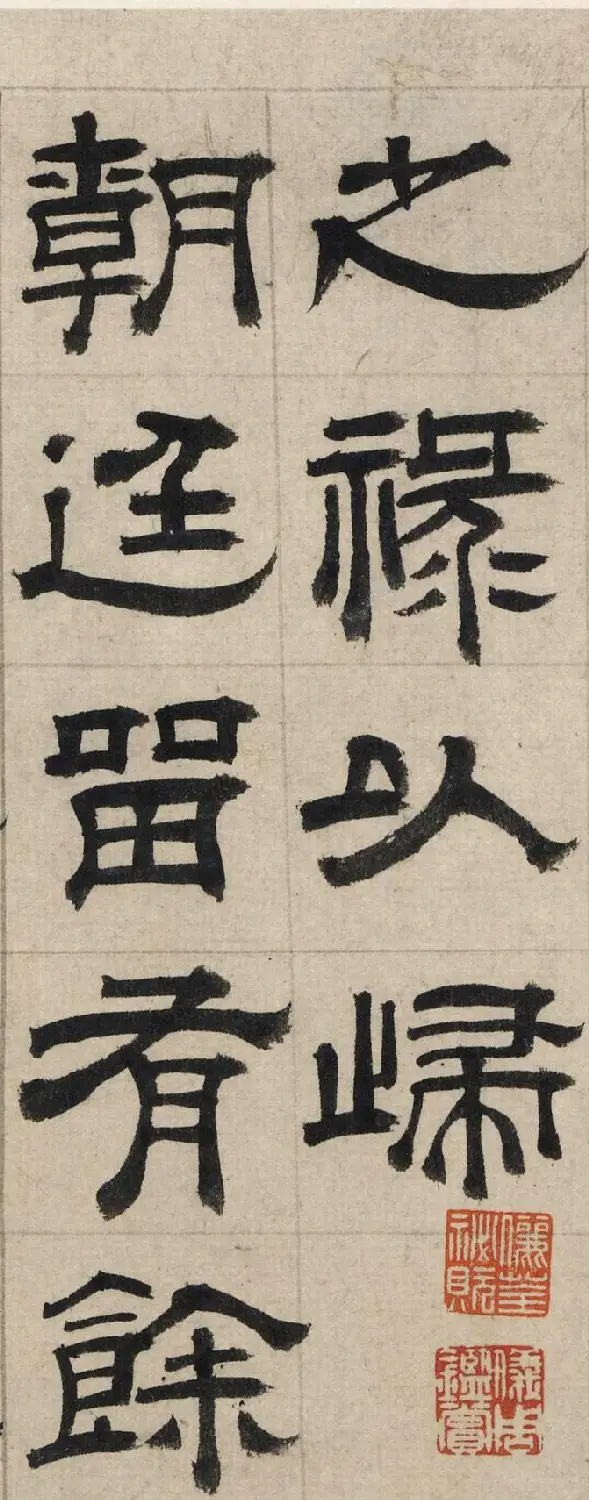 之祿以歸
朝廷留有餘